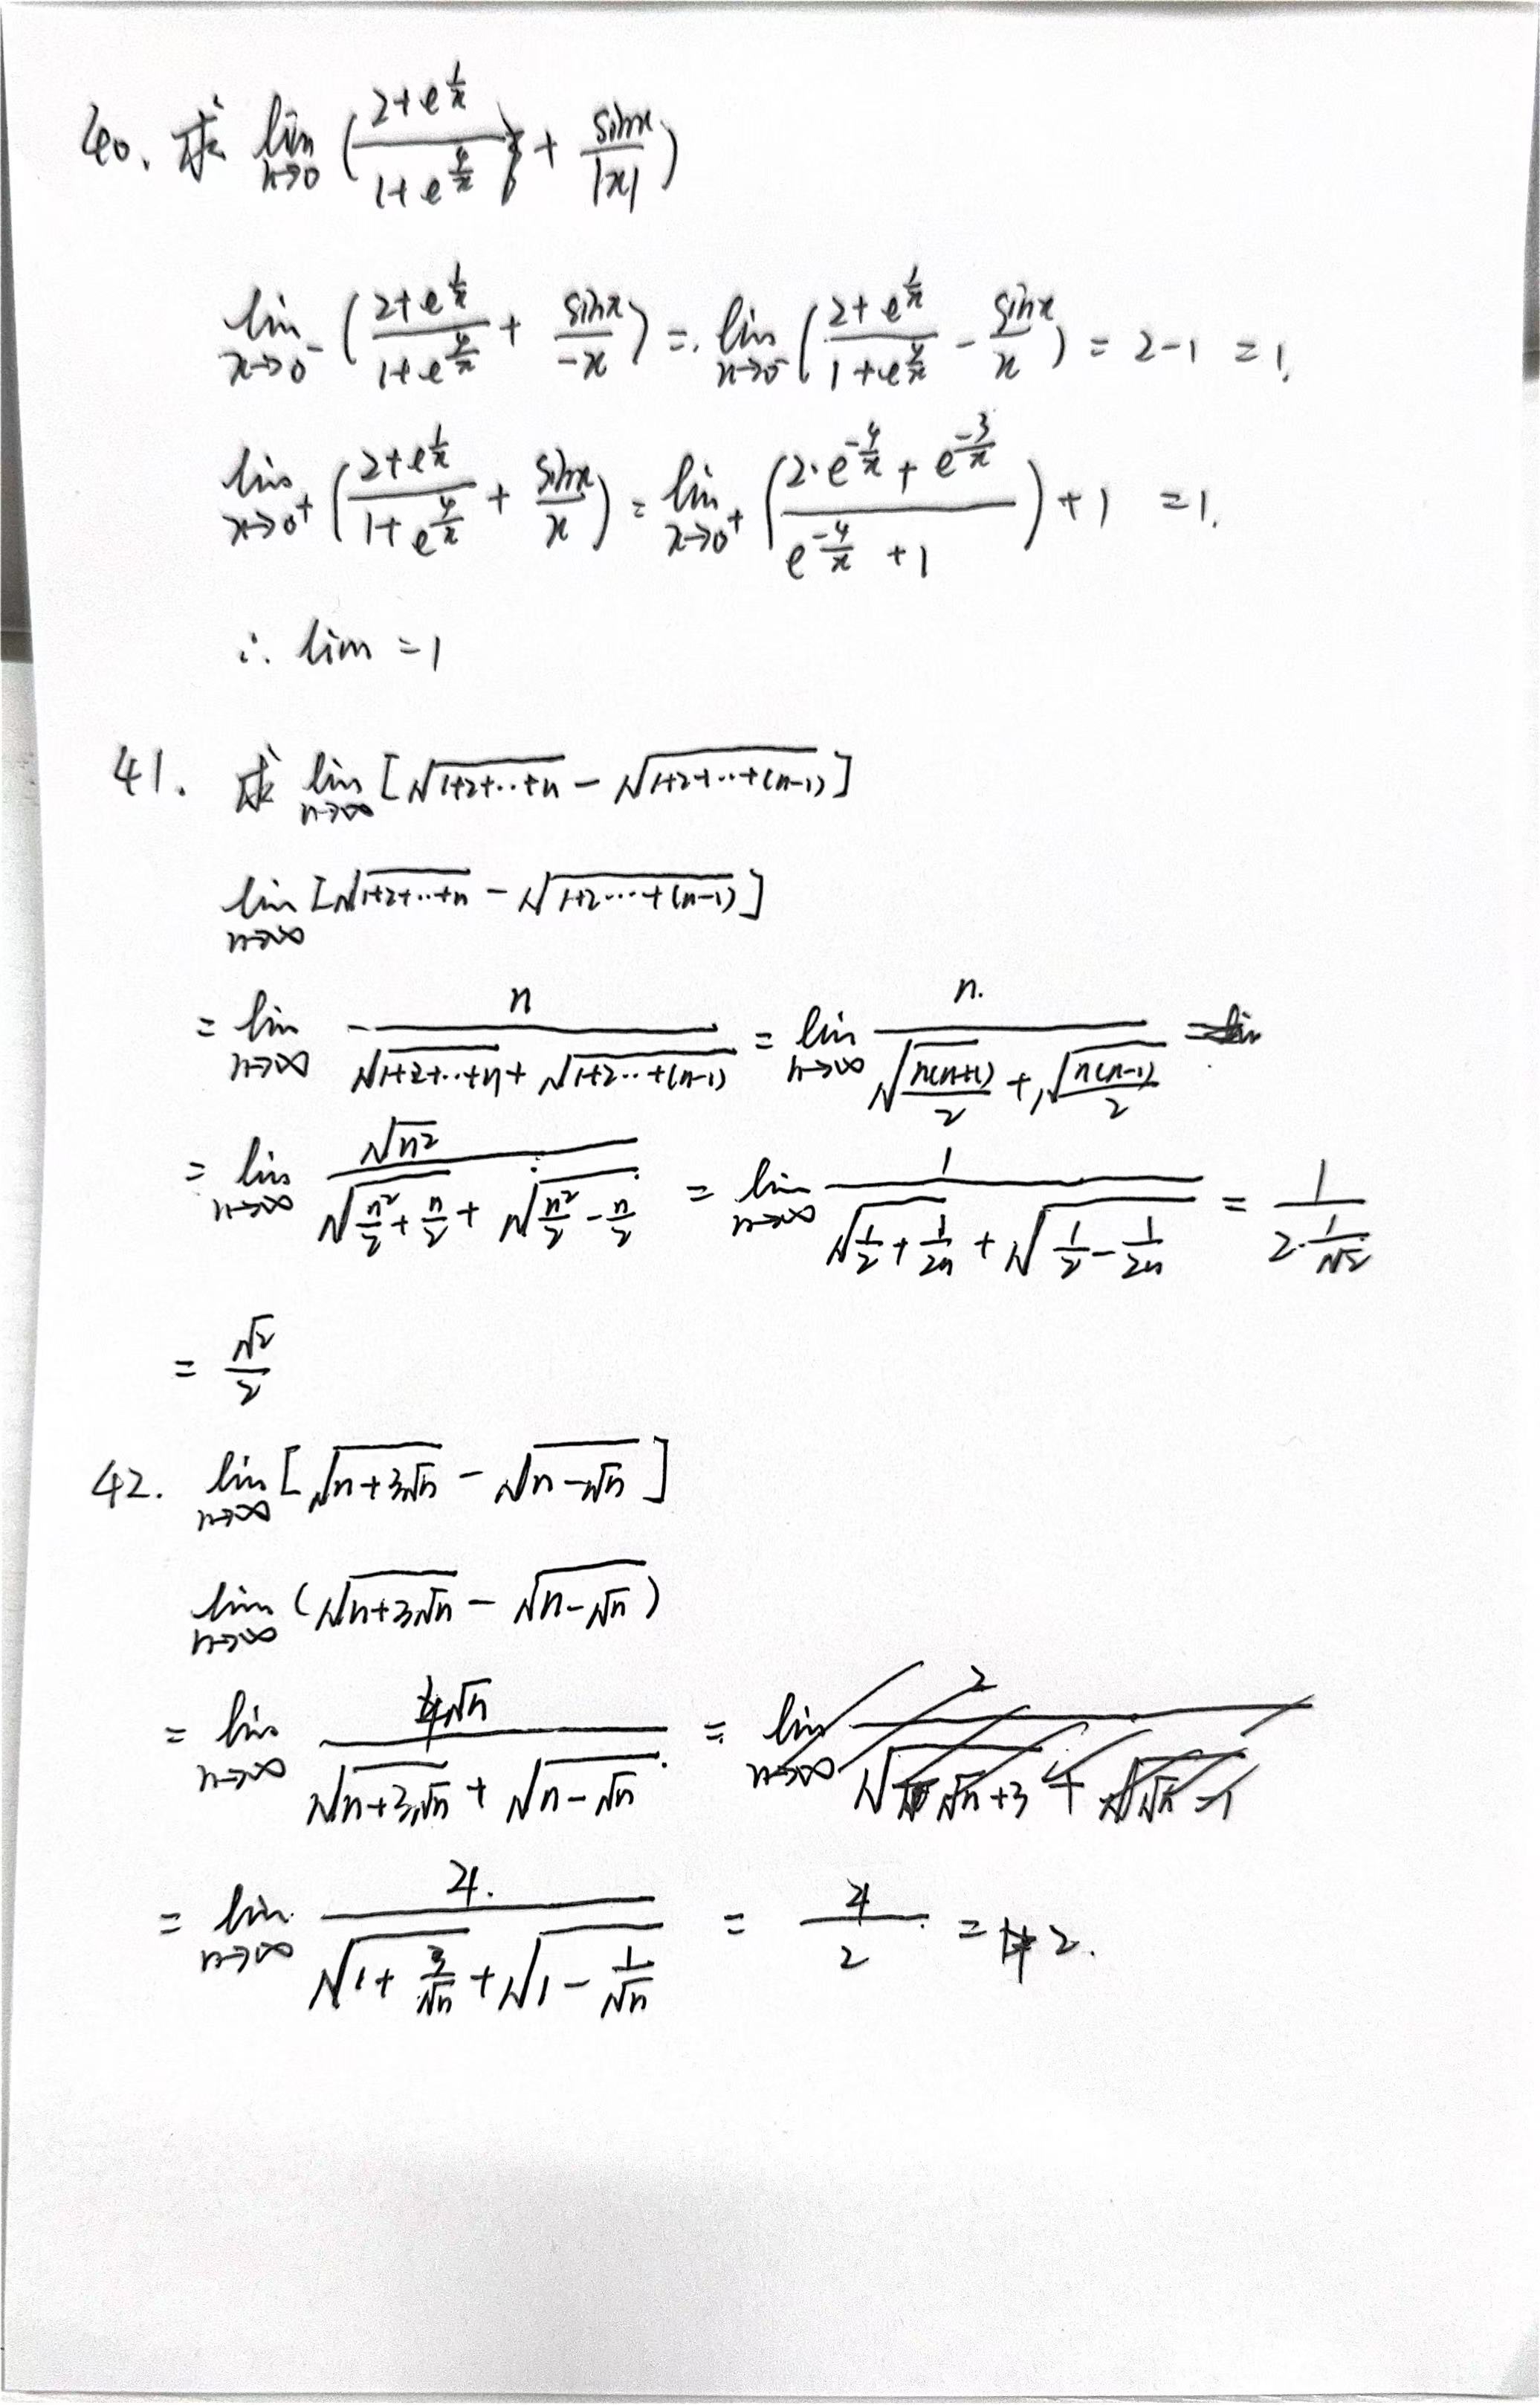 40. 求 lim_{x→0} (\frac{2+e^{\frac{1}{x}}}{1+e^{\frac{4}{x}}} + \frac{sinx}{|x|})
lim_{x→0^-} (\frac{2+e^{\frac{1}{x}}}{1+e^{\frac{4}{x}}} + \frac{sinx}{-x}) = lim_{x→0^-} (\frac{2+e^{\frac{1}{x}}}{1+e^{\frac{4}{x}}} - \frac{sinx}{x}) = 2-1 = 1.
lim_{x→0^+} (\frac{2+e^{\frac{1}{x}}}{1+e^{\frac{4}{x}}} + \frac{sinx}{x}) = lim_{x→0^+} (\frac{2·e^{-\frac{4}{x}} + e^{-\frac{3}{x}}}{e^{-\frac{4}{x}} + 1}) + 1 = 1.
∴ lim = 1
41. 求 lim_{n→∞} [\sqrt{1+2+···+n} - \sqrt{1+2+···+(n-1)}]
lim_{n→∞} [\sqrt{1+2+···+n} - \sqrt{1+2···+(n-1)}]
= lim_{n→∞} \frac{n}{\sqrt{1+2+···+n} + \sqrt{1+2···+(n-1)}} = lim_{n→∞} \frac{n}{\sqrt{\frac{n(n+1)}{2}} + \sqrt{\frac{n(n-1)}{2}}}
= lim_{n→∞} \frac{\sqrt{n^2}}{\sqrt{\frac{n^2}{2}+\frac{n}{2}} + \sqrt{\frac{n^2}{2}-\frac{n}{2}}} = lim_{n→∞} \frac{1}{\sqrt{\frac{1}{2}+\frac{1}{2n}} + \sqrt{\frac{1}{2}-\frac{1}{2n}}} = \frac{1}{2·\frac{1}{\sqrt{2}}}
= \frac{\sqrt{2}}{2}
42. lim_{n→∞} [\sqrt{n+3\sqrt{n}} - \sqrt{n-\sqrt{n}}]
lim_{n→∞} (\sqrt{n+3\sqrt{n}} - \sqrt{n-\sqrt{n}})
= lim_{n→∞} \frac{4\sqrt{n}}{\sqrt{n+3\sqrt{n}} + \sqrt{n-\sqrt{n}}}
= lim_{n→∞} \frac{4}{\sqrt{1+\frac{3}{\sqrt{n}}} + \sqrt{1-\frac{1}{\sqrt{n}}}} = \frac{4}{2} = 2.